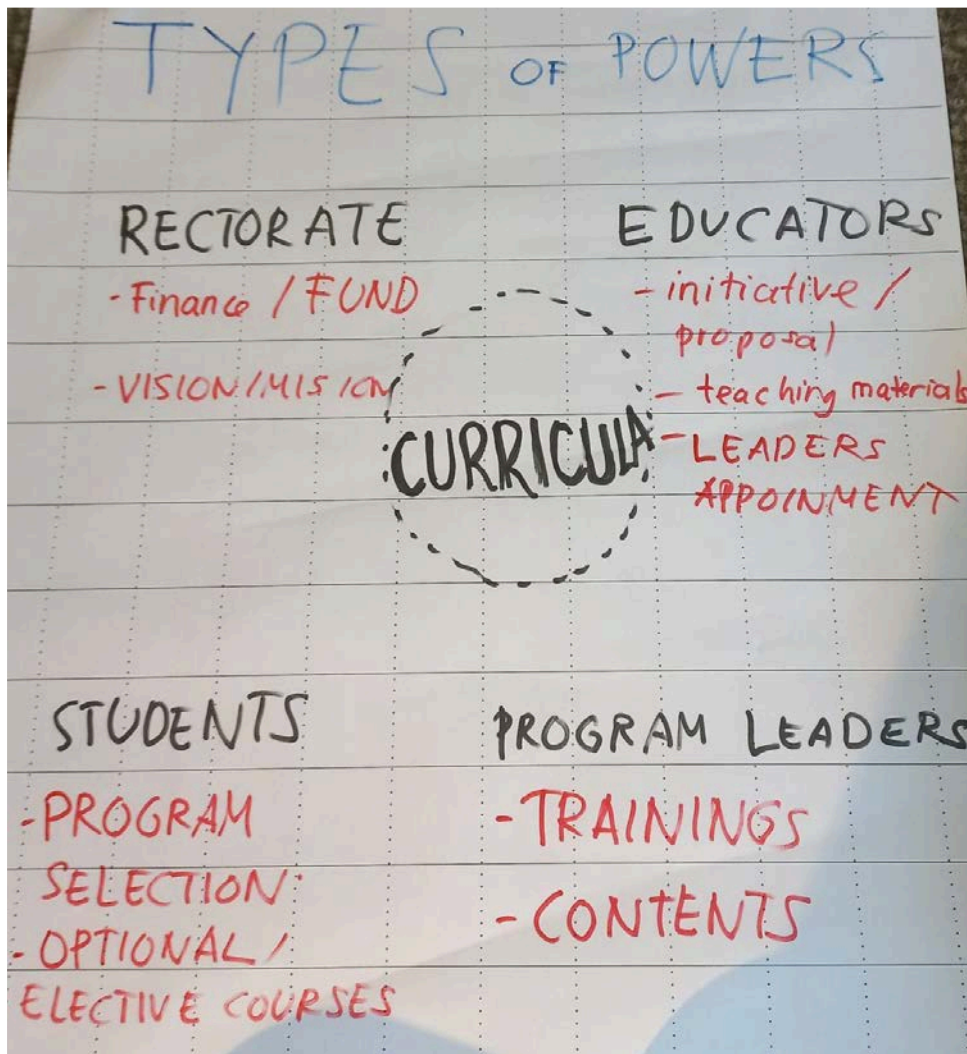 TYPES OF POWERS
RECTORATE
- Finance / FUND
- VISION/MISION
EDUCATORS
- initiative /
proposal
- teaching materials
- LEADERS
APPOINMENT
CURRICULA
STUDENTS
- PROGRAM
SELECTION
- OPTIONAL /
ELECTIVE COURSES
PROGRAM LEADERS
- TRAININGS
- CONTENTS